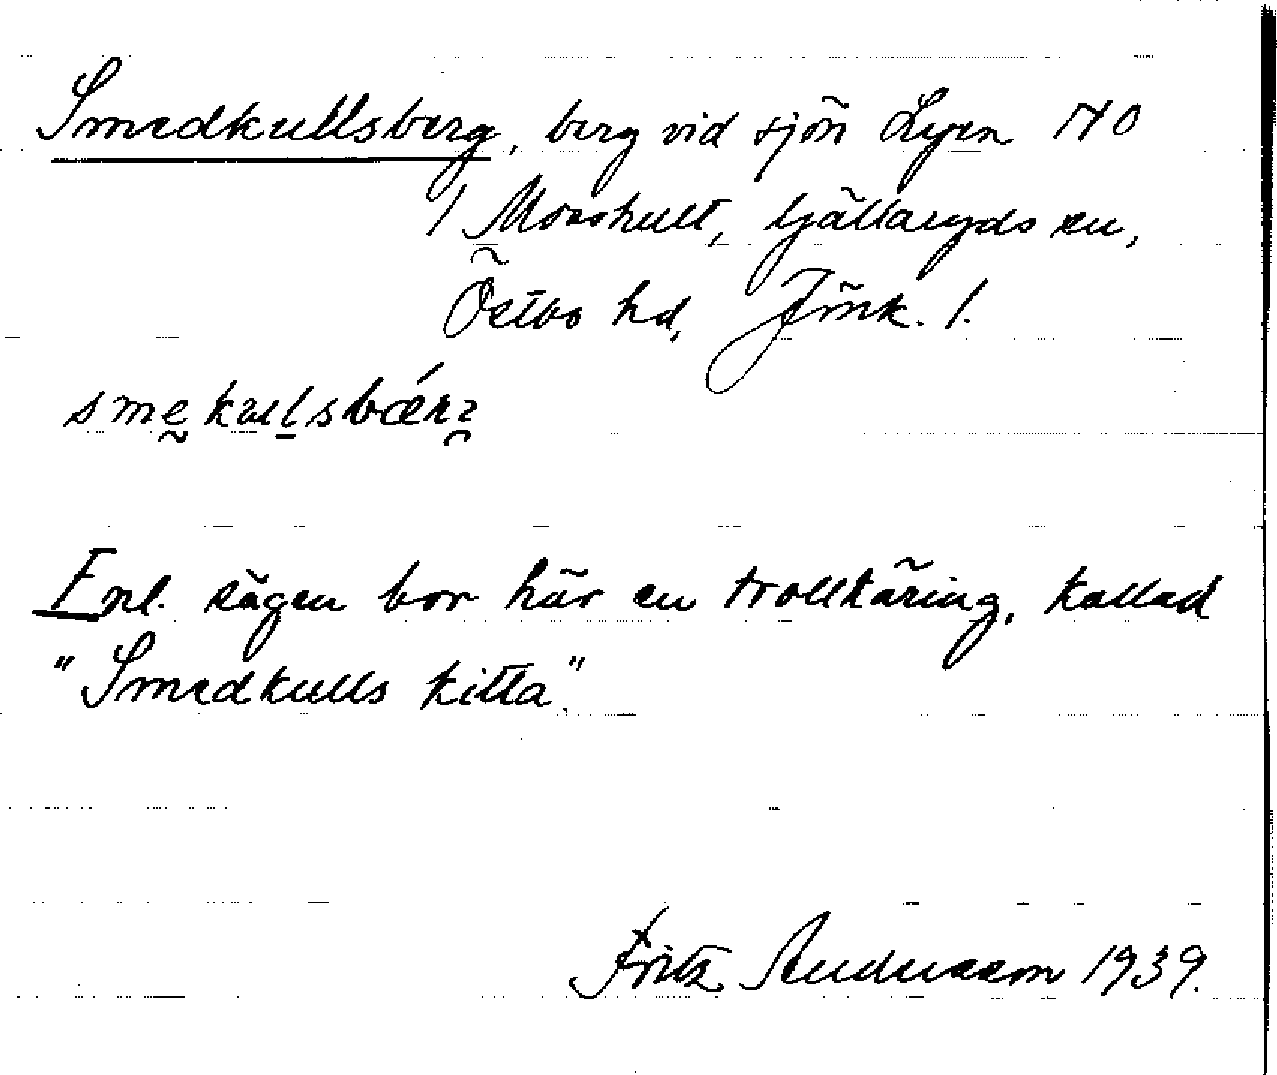 Smedkullsberg, berg vid sjön Lyen NO
/ Moashult, tjällaryds sn,
Östbo hd, Jönk. l.
smekullsbærʒ
Enl. sägen bor här en trollkäring, kallad
"Smedkulls kitta".
Fritz Andersson 1939.